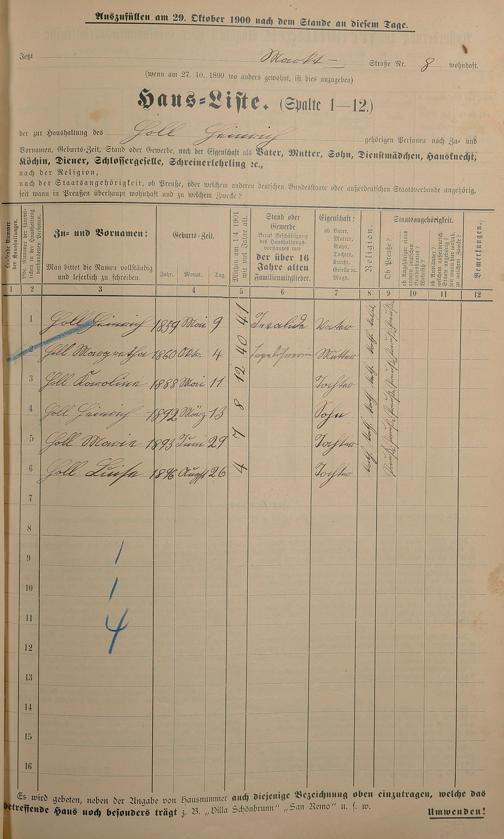 Auszufüllen am 29. Oktober 1900 nach dem Stande an diesem Tage.
Jetzt Markt- Straße Nr. 8 wohnhaft.
(wenn am 27. 10. 1899 wo anders gewohnt, ist dies anzugeben)
Haus-Liste. (Spalte 1—12.)
der zur Haushaltung des Göll Heinrich gehörigen Personen nach Zu- und
Vornamen, Geburts-Zeit, Stand oder Gewerbe, nach der Eigenschaft als Vater, Mutter, Sohn, Dienstmädchen, Hausknecht,
Köchin, Diener, Schlossergeselle, Schreinerlehrling &c.,
nach der Religion,
nach der Staatsangehörigkeit, ob Preuße, oder welchem anderen deutschen Bundesstaate oder außerdeutschen Staatsverbande angehörig,
seit wann in Preußen überhaupt wohnhaft und zu welchem Zwecke?
Zu- und Vornamen:
Man bittet die Namen vollständig
und leserlich zu schreiben.
Geburts-Zeit.
Jahr. Monat. Tag.
Mithin am 1./4. 1901 wie viel Jahre alt.
Stand oder
Gewerbe
der über 16
Jahre alten
Familienmitglieder.
Eigenschaft:
ob Vater,
Mutter,
Sohn,
Tochter,
Knecht,
Geselle &c.
Magd.
Religion.
Ob Preuße?
Staatsangehörigkeit.
Bemerkungen.
1 2 3 4 5 6 7 8 9 10 11 12
1 Göll Heinrich 1859 Mai 9 41 Invalide Vater
2 Göll Margaretha 1860 Okt. 4 40 Mutter
3 Göll Karoline 1888 Mai 11 12 Tochter
4 Göll Heinrich 1892 März 13 8 Sohn
5 Göll Marie 1893 Juni 29 7 Tochter
6 Göll Luise 1896 Augst 26 4 Tochter
7
8
9 1
10 1
11 4
12
13
14
15
16
Es wird gebeten, neben der Angabe von Hausnummer auch diejenige Bezeichnung oben einzutragen, welche das
betreffende Haus noch besonders trägt z. B. "Villa Schönbrunn" "San Remo" u. s. w. Umwenden!